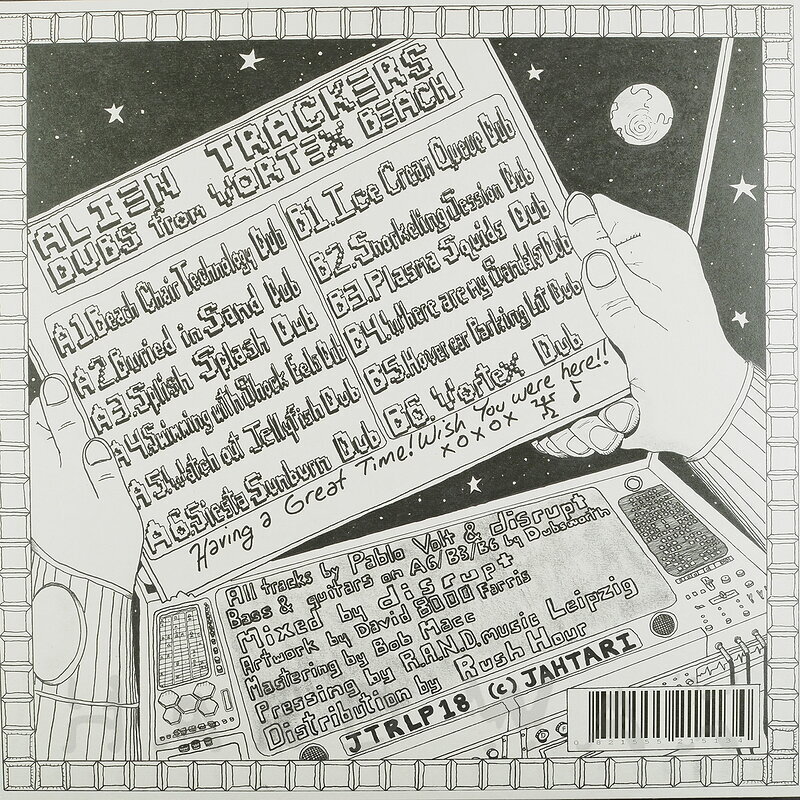 ALIEN TRACKERS
DUBS from VORTEX BEACH
A1.Beach Chair Technology Dub
A2.Buried in Sand Dub
A3.Splish Splash Dub
A4.Swimming with Shock Eels Dub
A5.Watch out Jellyfish Dub
A6.Siesta Sunburn Dub
B1.Ice Cream Queue Dub
B2.Snorkeling Session Dub
B3.Plasma Squids Dub
B4.Where are my Sandals Dub
B5.Hovercar Parking Lot Dub
B6.Vortex Dub
Having a Great Time! Wish You were here!!
xoxox
All tracks by Pablo Volt & disrupt
Bass & guitars on A6/B3/B6 by Dubsworth
Mixed by disrupt
Artwork by David 8000 Farris
Mastering by Bob Macc
Pressing by R.A.N.D.music Leipzig
Distribution by Rush Hour
JTRLP18 (c) JAHTARI